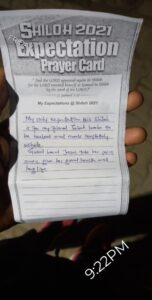 SHILOH 2021
Expectation
Prayer Card
"And the LORD appeared again in Shiloh:
for the LORD revealed himself to Samuel in Shiloh
by the word of the LORD."
My Expectations @ Shiloh 2021
My only expectation this Shiloh
is for my friend
be healed and made completely
whole
Good Lord Jesus take her pain
away, give her good health and
long life.
9:22PM